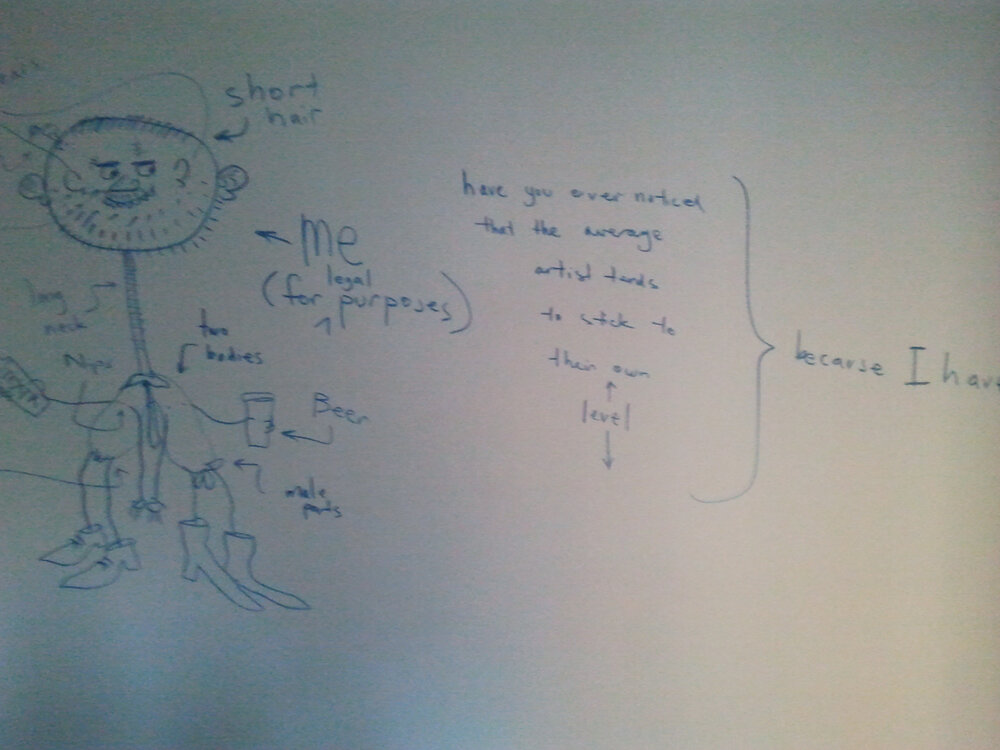 short
hair
me
(for legal purposes)
long
neck
Nips
two
bodies
Beer
male
parts
have you ever noticed
that the average
artist tends
to stick to
their own
level
because I hav